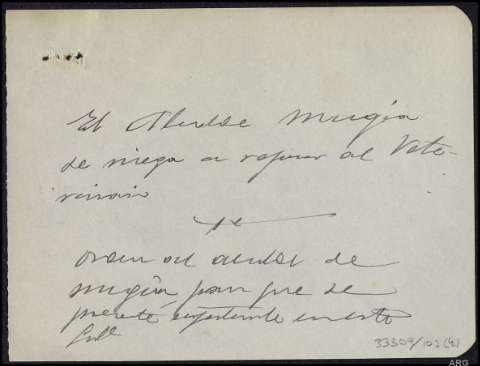 El Alcalde Mugia
se niega a reponer al Vete-
rinario
Orden al alcalde de
Mugia para que se
presente urgentemente en este
Gob.º
33309/102(2)
ARG